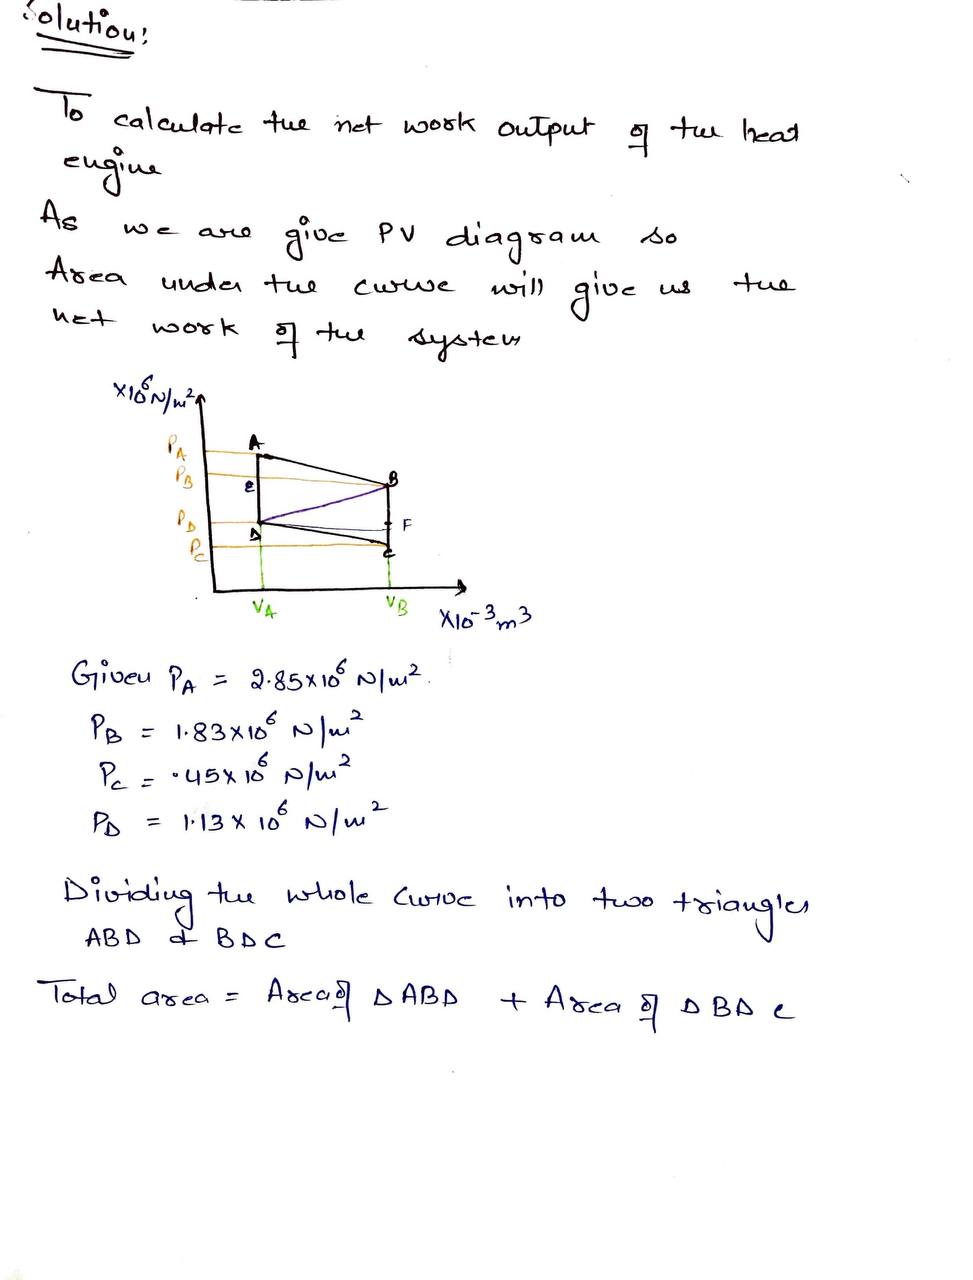 Solution:
To calculate the net work output of the heat
engine
As we are give PV diagram so
Area under the curve will give us the
net work of the system
×10⁶N/m²
P_A
A
P_B
B
E
P_D
F
D
P_C
C
V_A
V_B
×10⁻³m³
Given P_A = 2.85×10⁶ N/m².
P_B = 1.83×10⁶ N/m²
P_C = .45×10⁶ N/m²
P_D = 1.13×10⁶ N/m²
Dividing the whole curve into two triangles
ABD & BDC
Total area = Area of ΔABD + Area of ΔBDC